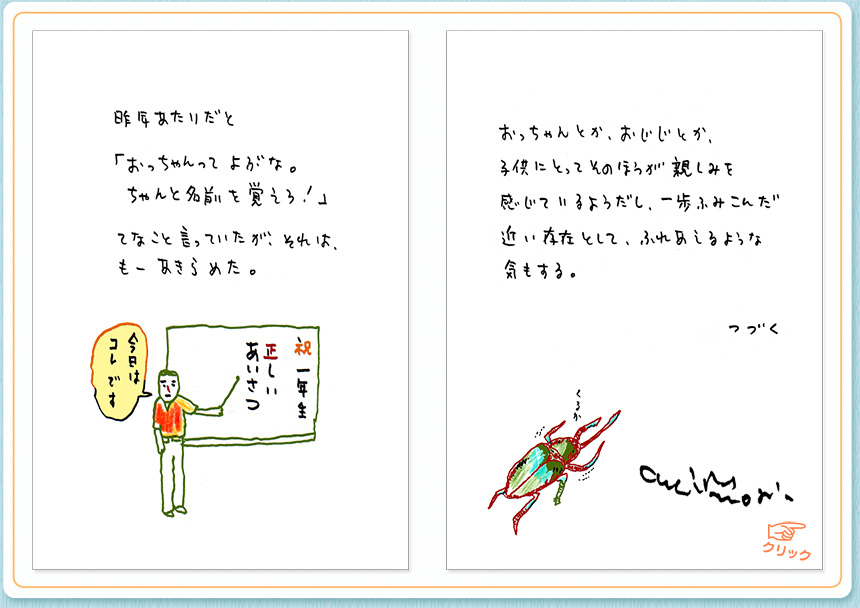 昨年あたりだと
「おっちゃんってよぶな。
ちゃんと名前を覚えろ！」
てなこと言っていたが、それは、
もーあきらめた。
今日は
コレです
祝 一年生
正しい
あいさつ
おっちゃんとか、おじじとか、
子供にとってそのほうが親しみを
感じているようだし、一歩ふみこんだ
近い存在として、ふれあえるような
気もする。
つづく
クリック